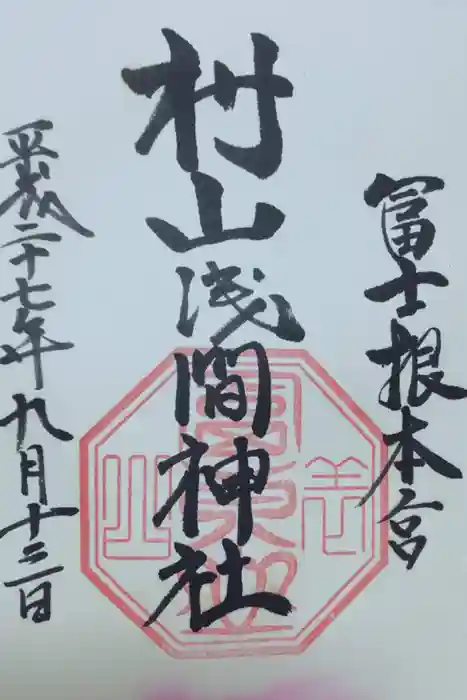 冨士根本宮
村山浅間神社
平成二十七年九月十三日